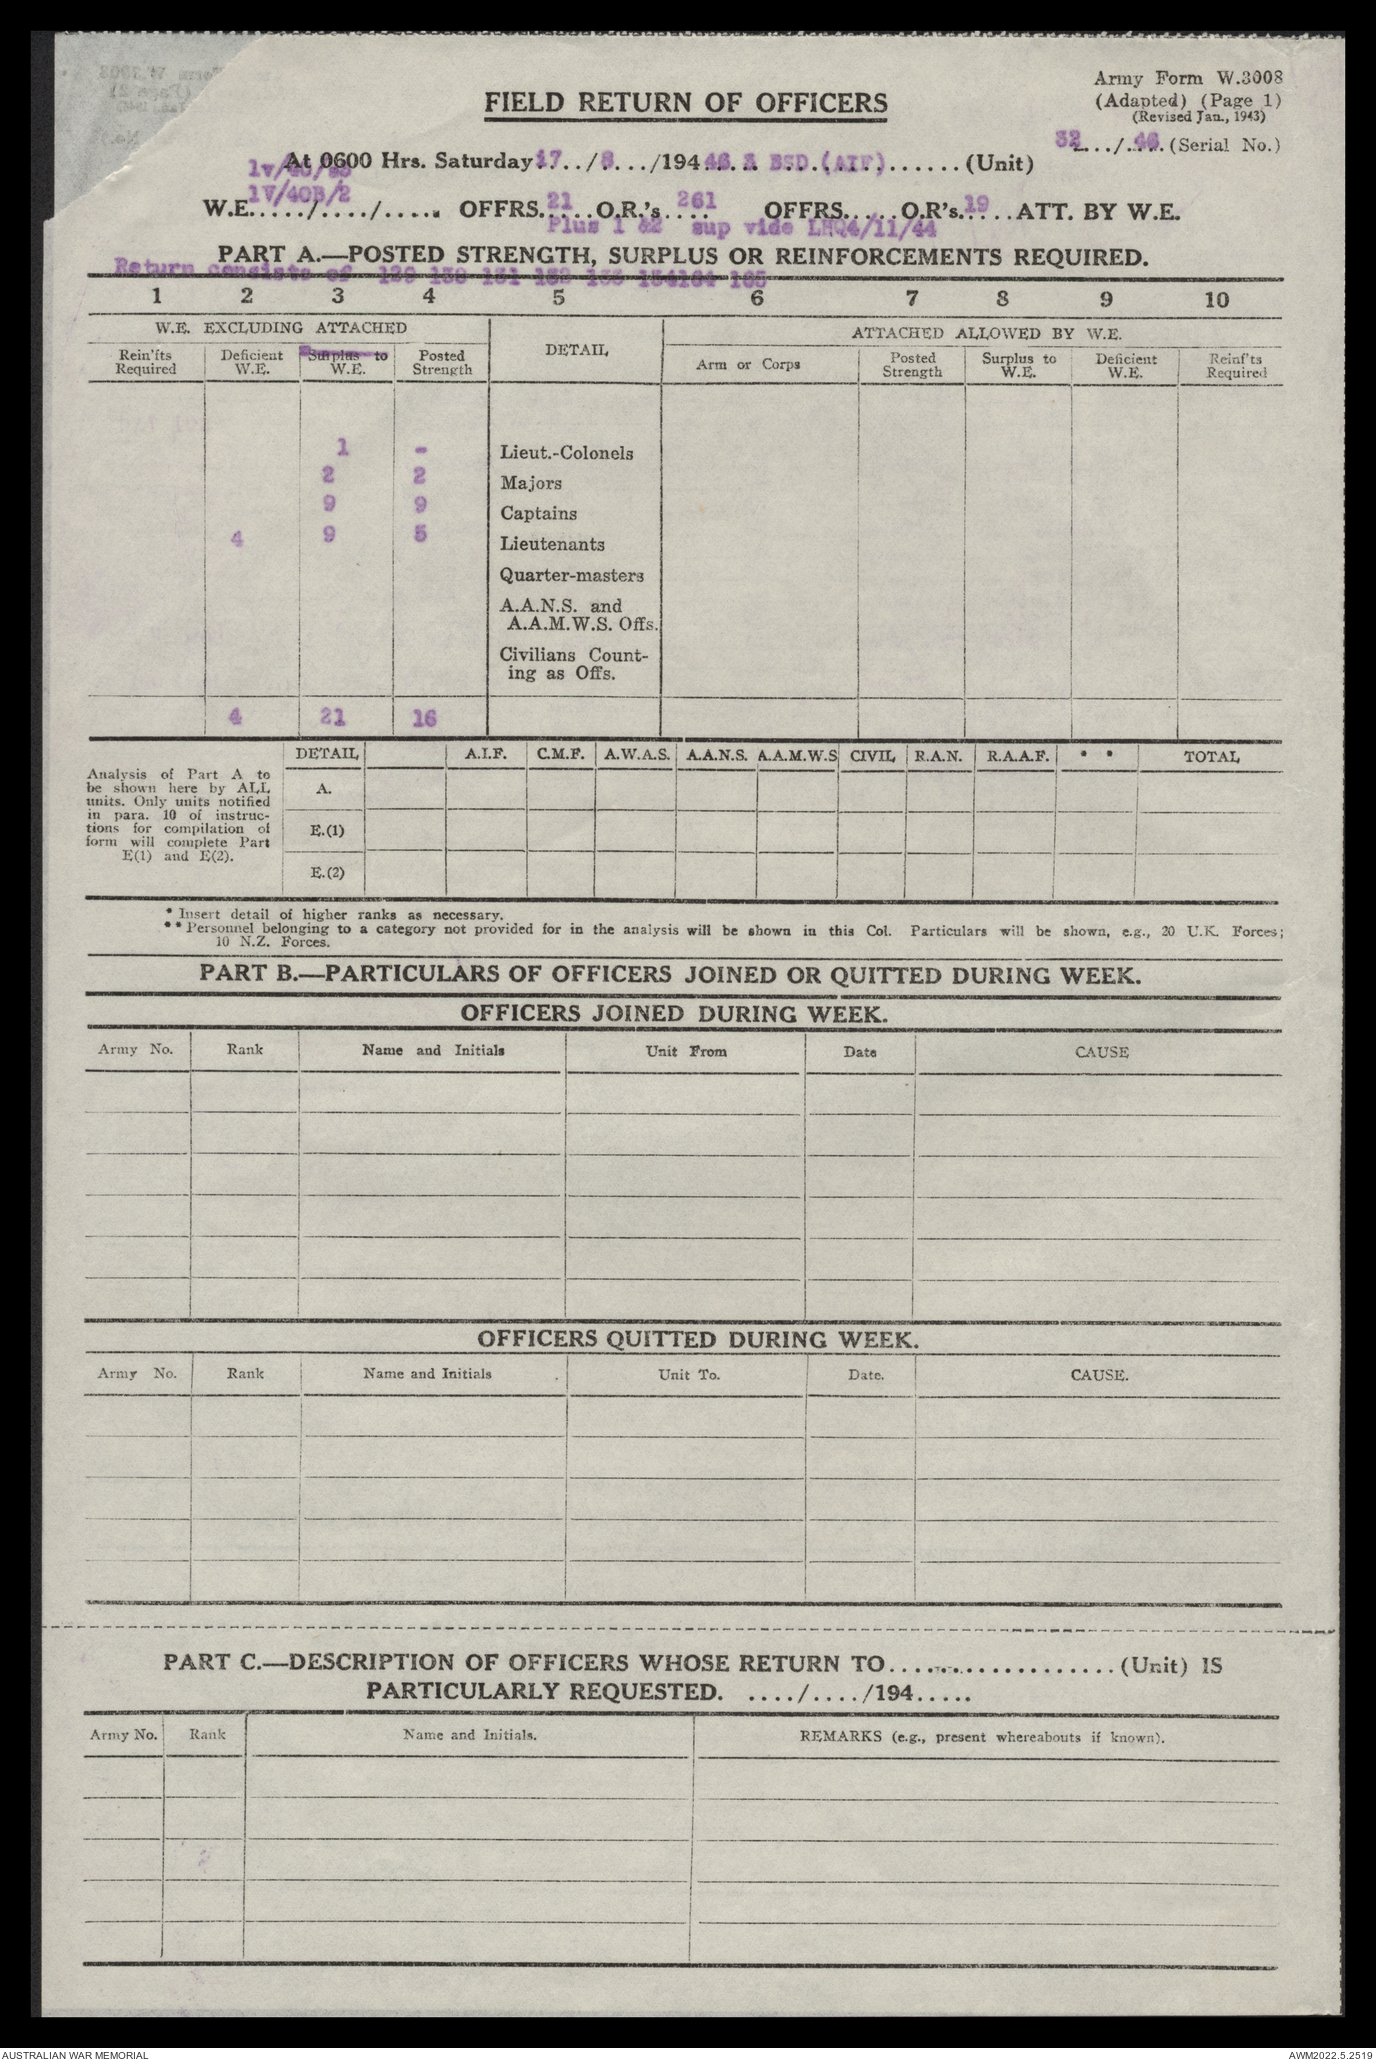 Army Form W.3008
FIELD RETURN OF OFFICERS
(Adapted) (Page 1)
(Revised Jan., 1943)
32..../.46. (Serial No.)
At 0600 Hrs. Saturday 17../8..../194 46. BSD.(AIF).......(Unit)
1V/40B/2
W.E...../..../..... OFFRS. 21 ...O.R.'s 261 OFFRS.....O.R's. 19 ...ATT. BY W.E.
Plus 1 &2 sup vide LHQ4/11/44
PART A.—POSTED STRENGTH, SURPLUS OR REINFORCEMENTS REQUIRED.
Return consists of 129 130 131 132 133 134164 165
1 2 3 4 5 6 7 8 9 10
W.E. EXCLUDING ATTACHED DETAIL ATTACHED ALLOWED BY W.E.
Rein'fts Required Deficient W.E. Surplus to W.E. Posted Strength Arm or Corps Posted Strength Surplus to W.E. Deficient W.E. Reinf'ts Required
1 - Lieut.-Colonels
2 2 Majors
9 9 Captains
4 9 5 Lieutenants
Quarter-masters
A.A.N.S. and
A.A.M.W.S. Offs.
Civilians Count-
ing as Offs.
4 21 16
DETAIL A.I.F. C.M.F. A.W.A.S. A.A.N.S. A.A.M.W.S CIVIL R.A.N. R.A.A.F. * * TOTAL
Analysis of Part A to
be shown here by ALL
units. Only units notified
in para. 10 of instruc-
tions for compilation of
form will complete Part
E(1) and E(2).
A.
E.(1)
E.(2)
* Insert detail of higher ranks as necessary.
** Personnel belonging to a category not provided for in the analysis will be shown in this Col. Particulars will be shown, e.g., 20 U.K. Forces;
10 N.Z. Forces.
PART B.—PARTICULARS OF OFFICERS JOINED OR QUITTED DURING WEEK.
OFFICERS JOINED DURING WEEK.
Army No. Rank Name and Initials Unit From Date CAUSE
OFFICERS QUITTED DURING WEEK.
Army No. Rank Name and Initials Unit To. Date. CAUSE.
PART C.—DESCRIPTION OF OFFICERS WHOSE RETURN TO....................(Unit) IS
PARTICULARLY REQUESTED. ..../..../194.....
Army No. Rank Name and Initials. REMARKS (e.g., present whereabouts if known).
AUSTRALIAN WAR MEMORIAL AWM2022.5.2519